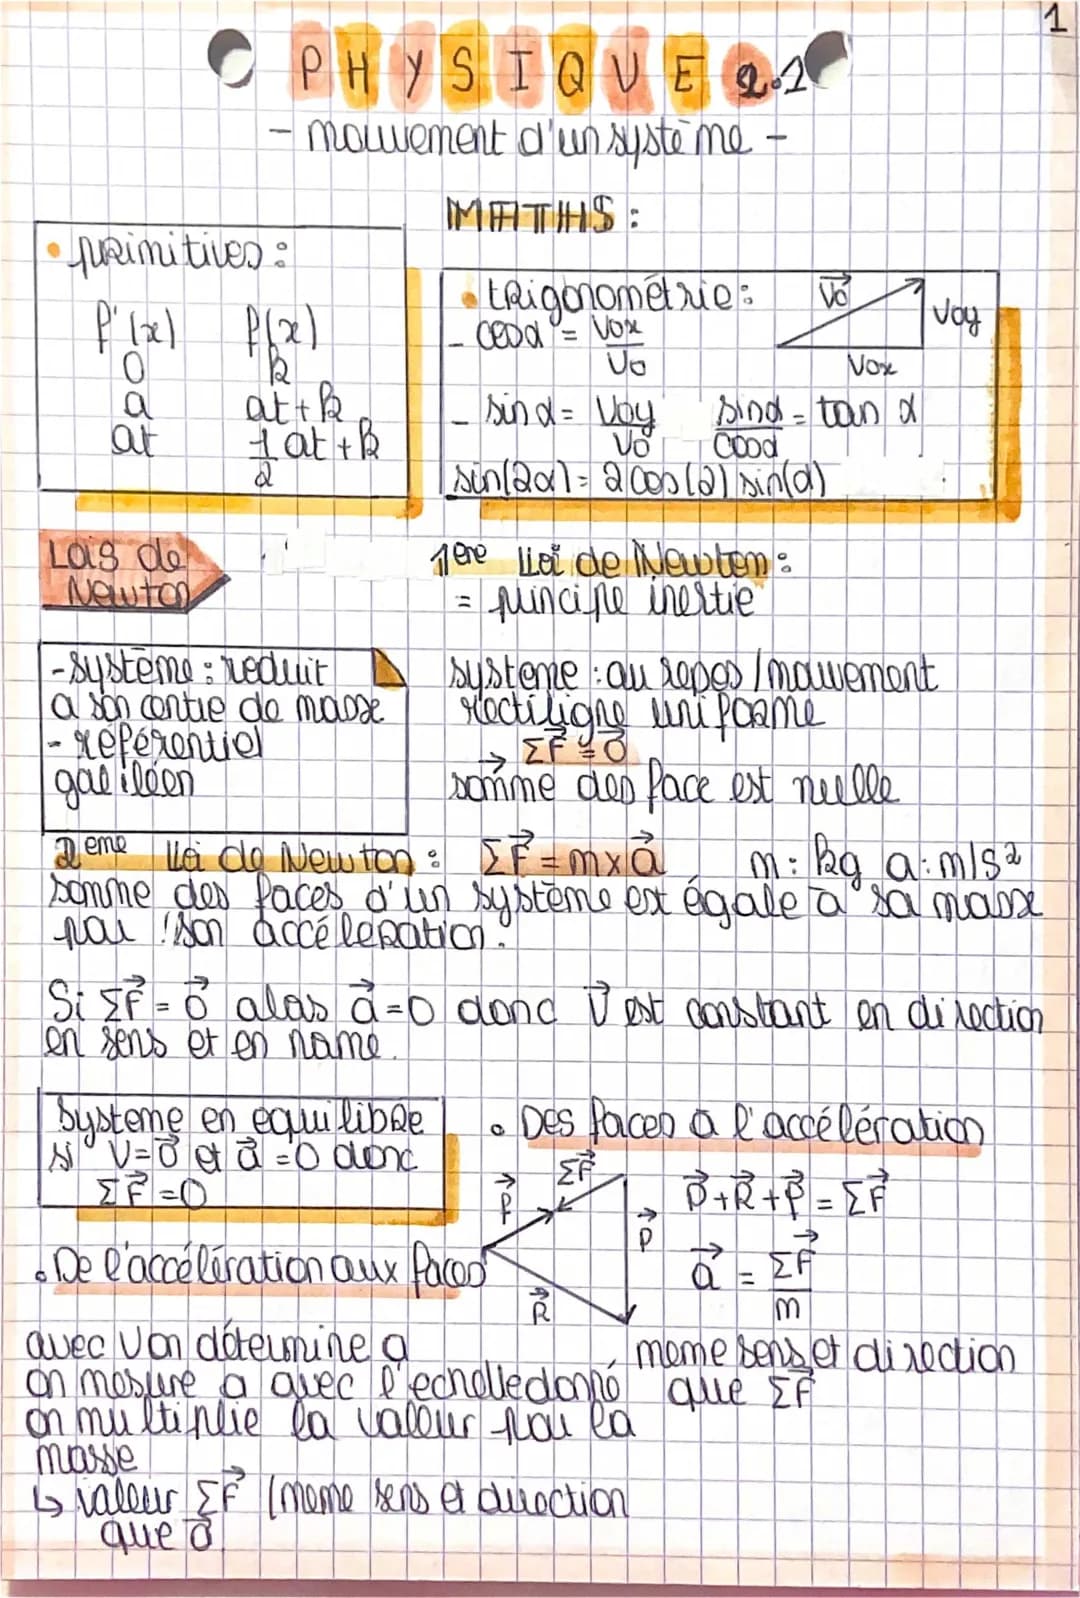 1
PHYSIQUE 2.1
- mouvement d'un système -
MATHS :
• primitives :
f'(x) f(x)
0 k
a at + k
at 1/2 at + k
• trigonométrie :
V⃗o
Voy
Vox
- cosα = Vox/Vo
- sinα = Voy/Vo sinα/cosα = tan α
sin(2α) = 2cos(2) sin(α)
Lois de
Newton
1ère Loi de Newton :
= principe inertie
- système : reduit
a son centre de masse
- référentiel
galiléen
systeme : au repos / mouvement
rectiligne uniforme
→ ΣF⃗ = 0⃗
somme des force est nulle
2eme Loi de Newton : ΣF⃗ = m x a⃗ m : kg a : m/s²
somme des forces d'un système est égale à sa masse
par son accéleration.
Si ΣF⃗ = 0⃗ alors a⃗ = 0 donc V⃗ est constant en direction
en sens et en norme.
Systeme en equilibre
si V = 0⃗ et a⃗ = 0 donc
ΣF⃗ = 0
• Des forces a l'accélération
ΣF⃗
f⃗
P⃗
R⃗
P⃗ + R⃗ + f⃗ = ΣF⃗
a⃗ = ΣF⃗/m
meme sens et direction
que ΣF⃗
• De l'accélération aux forces
avec V on détermine a
on mesure a avec l'echelle donné
on multiplie la valeur par la
masse
↳ valeur ΣF⃗ (meme sens et direction
que a⃗